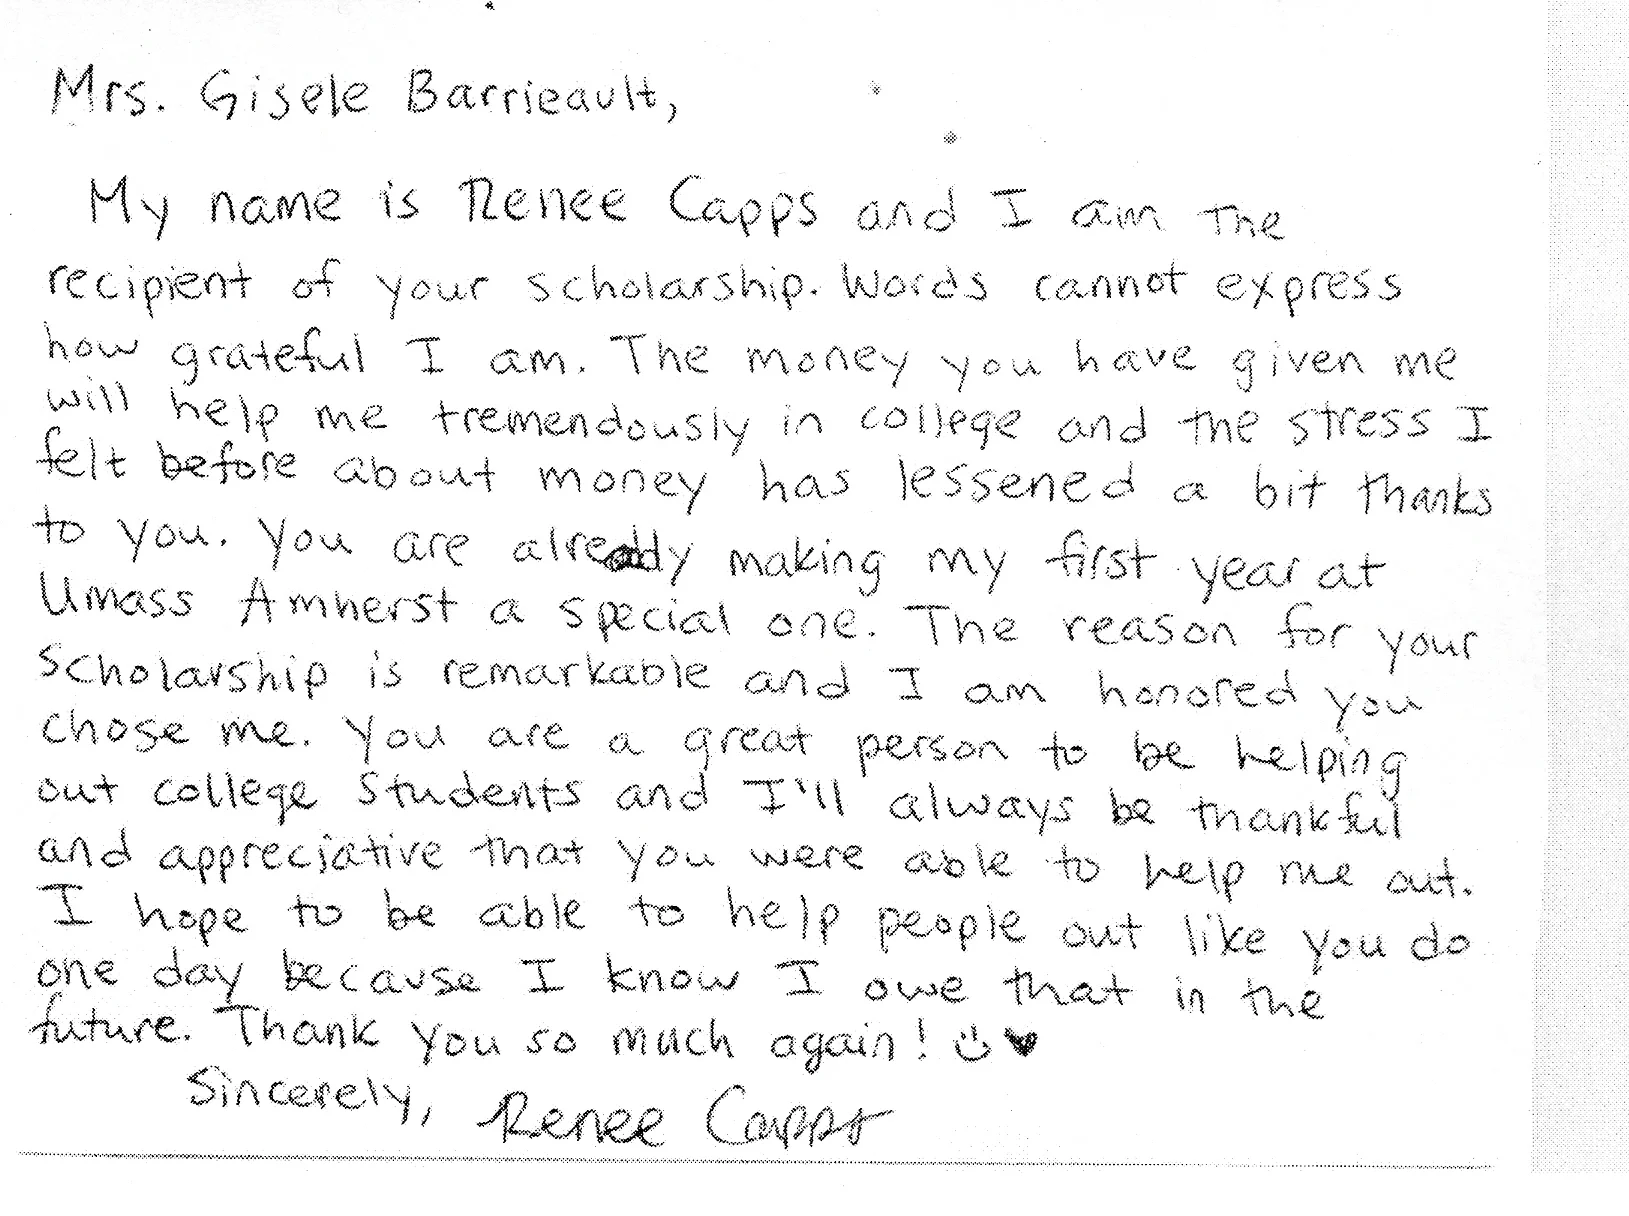 Mrs. Gisele Barrieault,
My name is Renee Capps and I am the
recipient of your scholarship. Words cannot express
how grateful I am. The money you have given me
will help me tremendously in college and the stress I
felt before about money has lessened a bit thanks
to you. You are already making my first year at
Umass Amherst a special one. The reason for your
scholarship is remarkable and I am honored you
chose me. You are a great person to be helping
out college students and I'll always be thankful
and appreciative that you were able to help me out.
I hope to be able to help people out like you do
one day because I know I owe that in the
future. Thank you so much again! ☺♥
Sincerely, Renee Capps